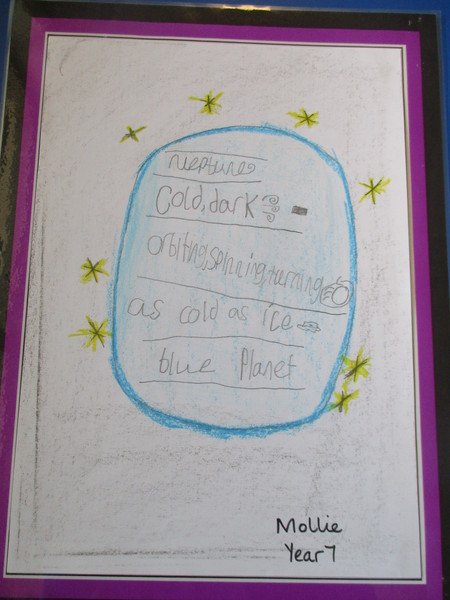 neptune
Cold, dark
orbiting, spinning, turning
as cold as ice
blue Planet
Mollie
Year 7